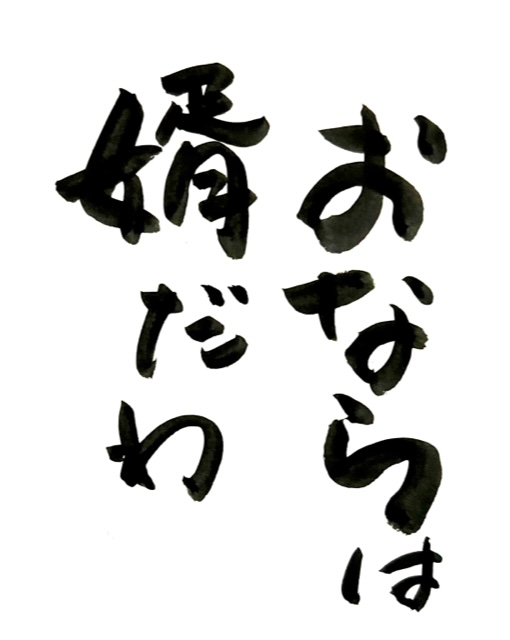 おならは
婿だわ